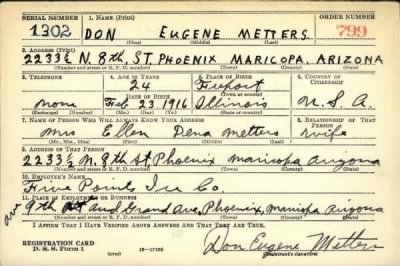 SERIAL NUMBER 1. NAME (Print) ORDER NUMBER
1302 DON EUGENE METTERS 799
(First) (Middle) (Last)
2. ADDRESS (Print)
2233½ N. 8th, ST. PHOENIX MARICOPA, ARIZONA
(Number and street or R. F. D. number) (Town) (County) (State)
3. TELEPHONE 4. AGE IN YEARS 5. PLACE OF BIRTH 6. COUNTRY OF CITIZENSHIP
24 Freeport
DATE OF BIRTH
none Feb. 23, 1916 Illinois U. S. A.
(Mo.) (Day) (Yr.) (State or country)
7. NAME OF PERSON WHO WILL ALWAYS KNOW YOUR ADDRESS 8. RELATIONSHIP OF THAT PERSON
Mrs Ellen Dena Metters wife
(Mr., Mrs., Miss) (First) (Middle) (Last)
9. ADDRESS OF THAT PERSON
2233½ N. 8th St Phoenix Maricopa Arizona
(Number and street or R. F. D. number) (Town) (County) (State)
10. EMPLOYER'S NAME
Five Points Ice Co.
11. PLACE OF EMPLOYMENT OR BUSINESS
9th Av and Grand Ave, Phoenix, Maricopa Arizona
(Number and street or R. F. D. number) (Town) (County) (State)
I AFFIRM THAT I HAVE VERIFIED ABOVE ANSWERS AND THAT THEY ARE TRUE.
REGISTRATION CARD
D. S. S. Form 1 (over) 16—17105
Don Eugene Metters
(Registrant's signature)